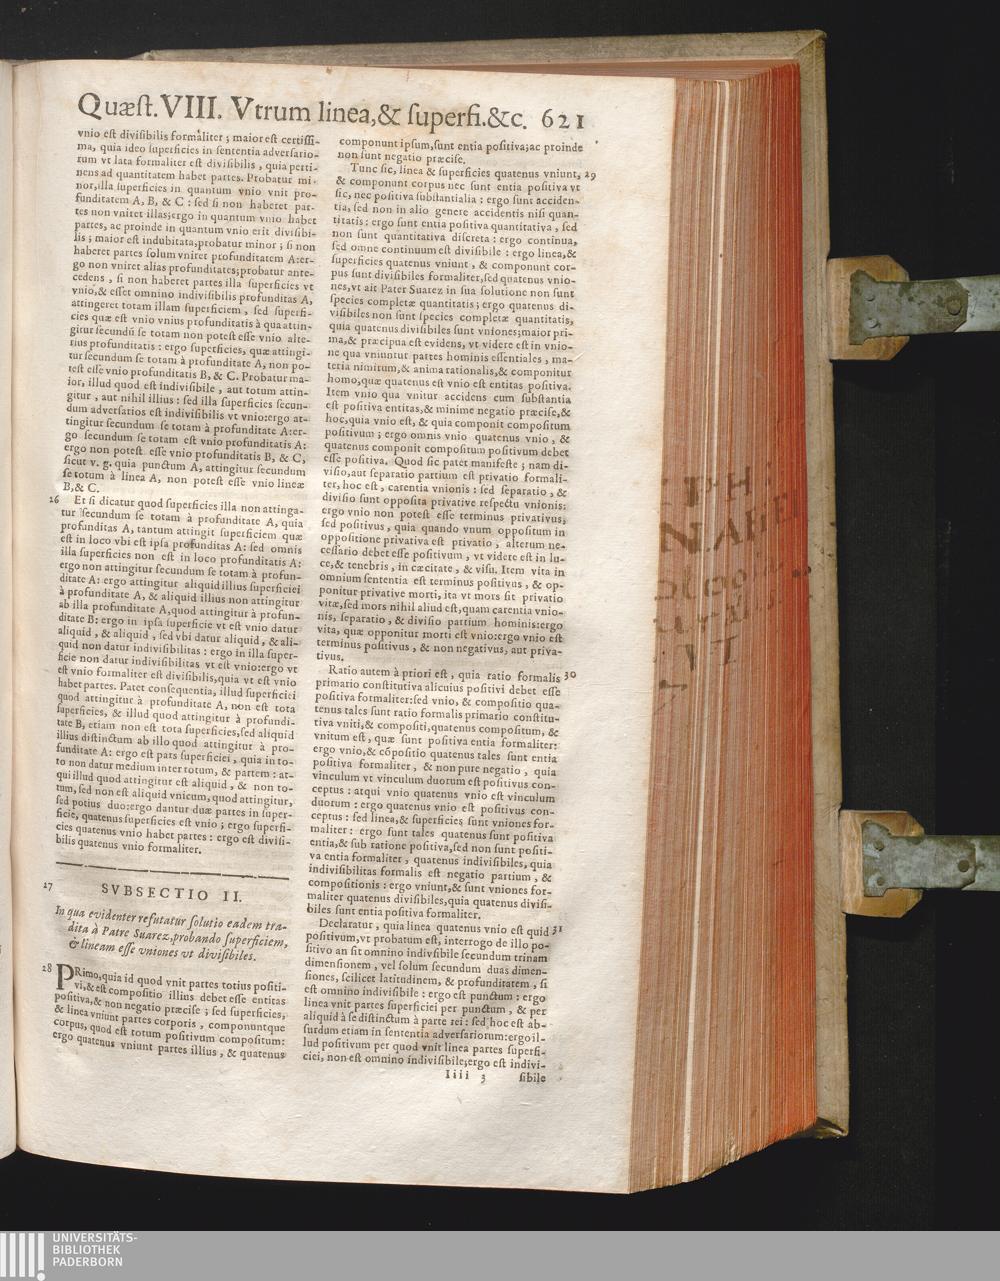 Quæst. VIII. Vtrum linea, & superfi. &c. 621
vnio est divisibilis formaliter; maior est certissi-
ma, quia ideo superficies in sententia adversario-
rum vt lata formaliter est divisibilis, quia perti-
nens ad quantitatem habet partes. Probatur mi-
nor, illa superficies in quantum vnio vnit pro-
funditatem A, B, & C: sed si non haberet par-
tes non vniret illas; ergo in quantum vnio habet
partes, ac proinde in quantum vnio erit divisibi-
lis; maior est indubitata; probatur minor; si non
haberet partes solum vniret profunditatem A: er-
go non vniret alias profunditates; probatur ante-
cedens, si non haberet partes illa superficies vt
vnio, & esset omnino indivisibilis profunditas A,
attingeret totam illam superficiem, sed superfi-
cies quæ est vnio vnius profunditatis à qua attin-
gitur secundũ se totam non potest esse vnio alte-
rius profunditatis: ergo superficies, quæ attingi-
tur secundum se totam à profunditate A, non po-
test esse vnio profunditatis B, & C. Probatur ma-
ior, illud quod est indivisibile, aut totum attin-
gitur, aut nihil illius: sed illa superficies secun-
dum adversarios est indivisibilis vt vnio: ergo at-
tingitur secundum se totam à profunditate A: er-
go secundum se totam est vnio profunditatis A:
ergo non potest esse vnio profunditatis B, & C,
sicut v. g. quia punctum A, attingitur secundum
se totum à linea A, non potest esse vnio lineæ
B, & C.
26 Et si dicatur quod superficies illa non attinga-
tur secundum se totam à profunditate A, quia
profunditas A, tantum attingit superficiem quæ
est in loco vbi est ipsa profunditas A: sed omnis
illa superficies non est in loco profunditatis A:
ergo non attingitur secundum se totam à profun-
ditate A: ergo attingitur aliquid illius superficiei
à profunditate A, & aliquid illius non attingitur
ab illa profunditate A, quod attingitur à profun-
ditate B: ergo in ipsa superficie vt est vnio datur
aliquid, & aliquid, sed vbi datur aliquid, & ali-
quid non datur indivisibilitas: ergo in illa super-
ficie non datur indivisibilitas vt est vnio: ergo vt
est vnio formaliter est divisibilis, quia vt est vnio
habet partes. Patet consequentia, illud superficiei
quod attingitur à profunditate A, non est tota
superficies, & illud quod attingitur à profundi-
tate B, etiam non est tota superficies, sed aliquid
illius distinctum ab illo quod attingitur à pro-
funditate A: ergo est pars superficiei, quia in to-
to non datur medium inter totum, & partem: at-
qui illud quod attingitur est aliquid, & non to-
tum, sed non est aliquid vnicum, quod attingitur,
sed potius duo: ergo dantur duæ partes in super-
ficie, quatenus superficies est vnio; ergo superfi-
cies quatenus vnio habet partes: ergo est divisi-
bilis quatenus vnio formaliter.
27 SVBSECTIO II.
In qua evidenter refutatur solutio eadem tra-
dita à Patre Suarez, probando superficiem,
& lineam esse vniones vt divisibiles.
28 PRimo, quia id quod vnit partes totius positi-
vi, & est compositio illius debet esse entitas
positiva, & non negatio præcise; sed superficies,
& linea vniunt partes corporis, componuntque
corpus, quod est totum positivum compositum:
ergo quatenus vniunt partes illius, & quatenus
componunt ipsum, sunt entia positiva; ac proinde
non sunt negatio præcise.
Tunc sic, linea & superficies quatenus vniunt, 29
& componunt corpus nec sunt entia positiva vt
sic, nec positiva substantialia: ergo sunt acciden-
tia, sed non in alio genere accidentis nisi quan-
titatis: ergo sunt entia positiva quantitativa, sed
non sunt quantitativa discreta: ergo continua,
sed omne continuum est divisibile: ergo linea, &
superficies quatenus vniunt, & componunt cor-
pus sunt divisibiles formaliter, sed quatenus vnio-
nes, vt ait Pater Suarez in sua solutione non sunt
species completæ quantitatis; ergo quatenus di-
visibiles non sunt species completæ quantitatis,
quia quatenus divisibiles sunt vniones; maior pri-
ma, & præcipua est evidens, vt videre est in vnio-
ne qua vniuntur partes hominis essentiales, ma-
teria nimirum, & anima rationalis, & componitur
homo, quæ quatenus est vnio est entitas positiva.
Item vnio qua vnitur accidens cum substantia
est positiva entitas, & minime negatio præcise, &
hoc, quia vnio est, & quia componit compositum
positivum; ergo omnis vnio quatenus vnio, &
quatenus componit compositum positivum debet
esse positiva. Quod sic patet manifeste; nam di-
visio, aut separatio partium est privatio formali-
ter, hoc est, carentia vnionis: sed separatio, &
divisio sunt opposita privative respectu vnionis:
ergo vnio non potest esse terminus privativus,
sed positivus, quia quando vnum oppositum in
oppositione privativa est privatio, alterum ne-
cessario debet esse positivum, vt videre est in lu-
ce, & tenebris, in cæcitate, & visu. Item vita in
omnium sententia est terminus positivus, & op-
ponitur privative morti, ita vt mors sit privatio
vitæ, sed mors nihil aliud est, quam carentia vnio-
nis, separatio, & divisio partium hominis: ergo
vita, quæ opponitur morti est vnio: ergo vnio est
terminus positivus, & non negativus, aut priva-
tivus.
Ratio autem à priori est, quia ratio formalis 30
primario constitutiva alicuius positivi debet esse
positiva formaliter: sed vnio, & compositio qua-
tenus tales sunt ratio formalis primario constitu-
tiva vniti, & compositi, quatenus compositum, &
vnitum est, quæ sunt positiva entia formaliter:
ergo vnio, & cõpositio quatenus tales sunt entia
positiva formaliter, & non pure negatio, quia
vinculum vt vinculum duorum est positivus con-
ceptus: atqui vnio quatenus vnio est vinculum
duorum: ergo quatenus vnio est positivus con-
ceptus: sed linea, & superficies sunt vniones for-
maliter: ergo sunt tales quatenus sunt positiva
entia, & sub ratione positiva, sed non sunt positi-
va entia formaliter, quatenus indivisibiles, quia
indivisibilitas formalis est negatio partium, &
compositionis: ergo vniunt, & sunt vniones for-
maliter quatenus divisibiles, quia quatenus divisi-
biles sunt entia positiva formaliter.
Declaratur, quia linea quatenus vnio est quid 31
positivum, vt probatum est, interrogo de illo po-
sitivo an sit omnino indivsibile secundum trinam
dimensionem, vel solum secundum duas dimen-
siones, scilicet latitudinem, & profunditatem, si
est omnino indivisibile: ergo est punctum: ergo
linea vnit partes superficiei per punctum, & per
aliquid à se distinctum à parte rei: sed hoc est ab-
surdum etiam in sententia adversariorum: ergo il-
lud positivum per quod vnit linea partes superfi-
ciei, non est omnino indivisibile; ergo est indivi-
Iiii 3 sibile
UNIVERSITÄTS-
BIBLIOTHEK
PADERBORN